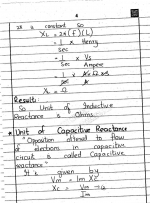 2π is constant so
XL = 2π(f)(L)
= 1/sec × Henry
= 1/sec × Vs/Ampere
XL = Ω
Result:
So Unit of Inductive
Reactance is Ohms.
* Unit of Capacitive Reactance
"Opposition offered to flow
of electrons in capacitive
circuit is called Capacitive
reactance"
It is given by
Vm = Im XC
XC = Vm/Im